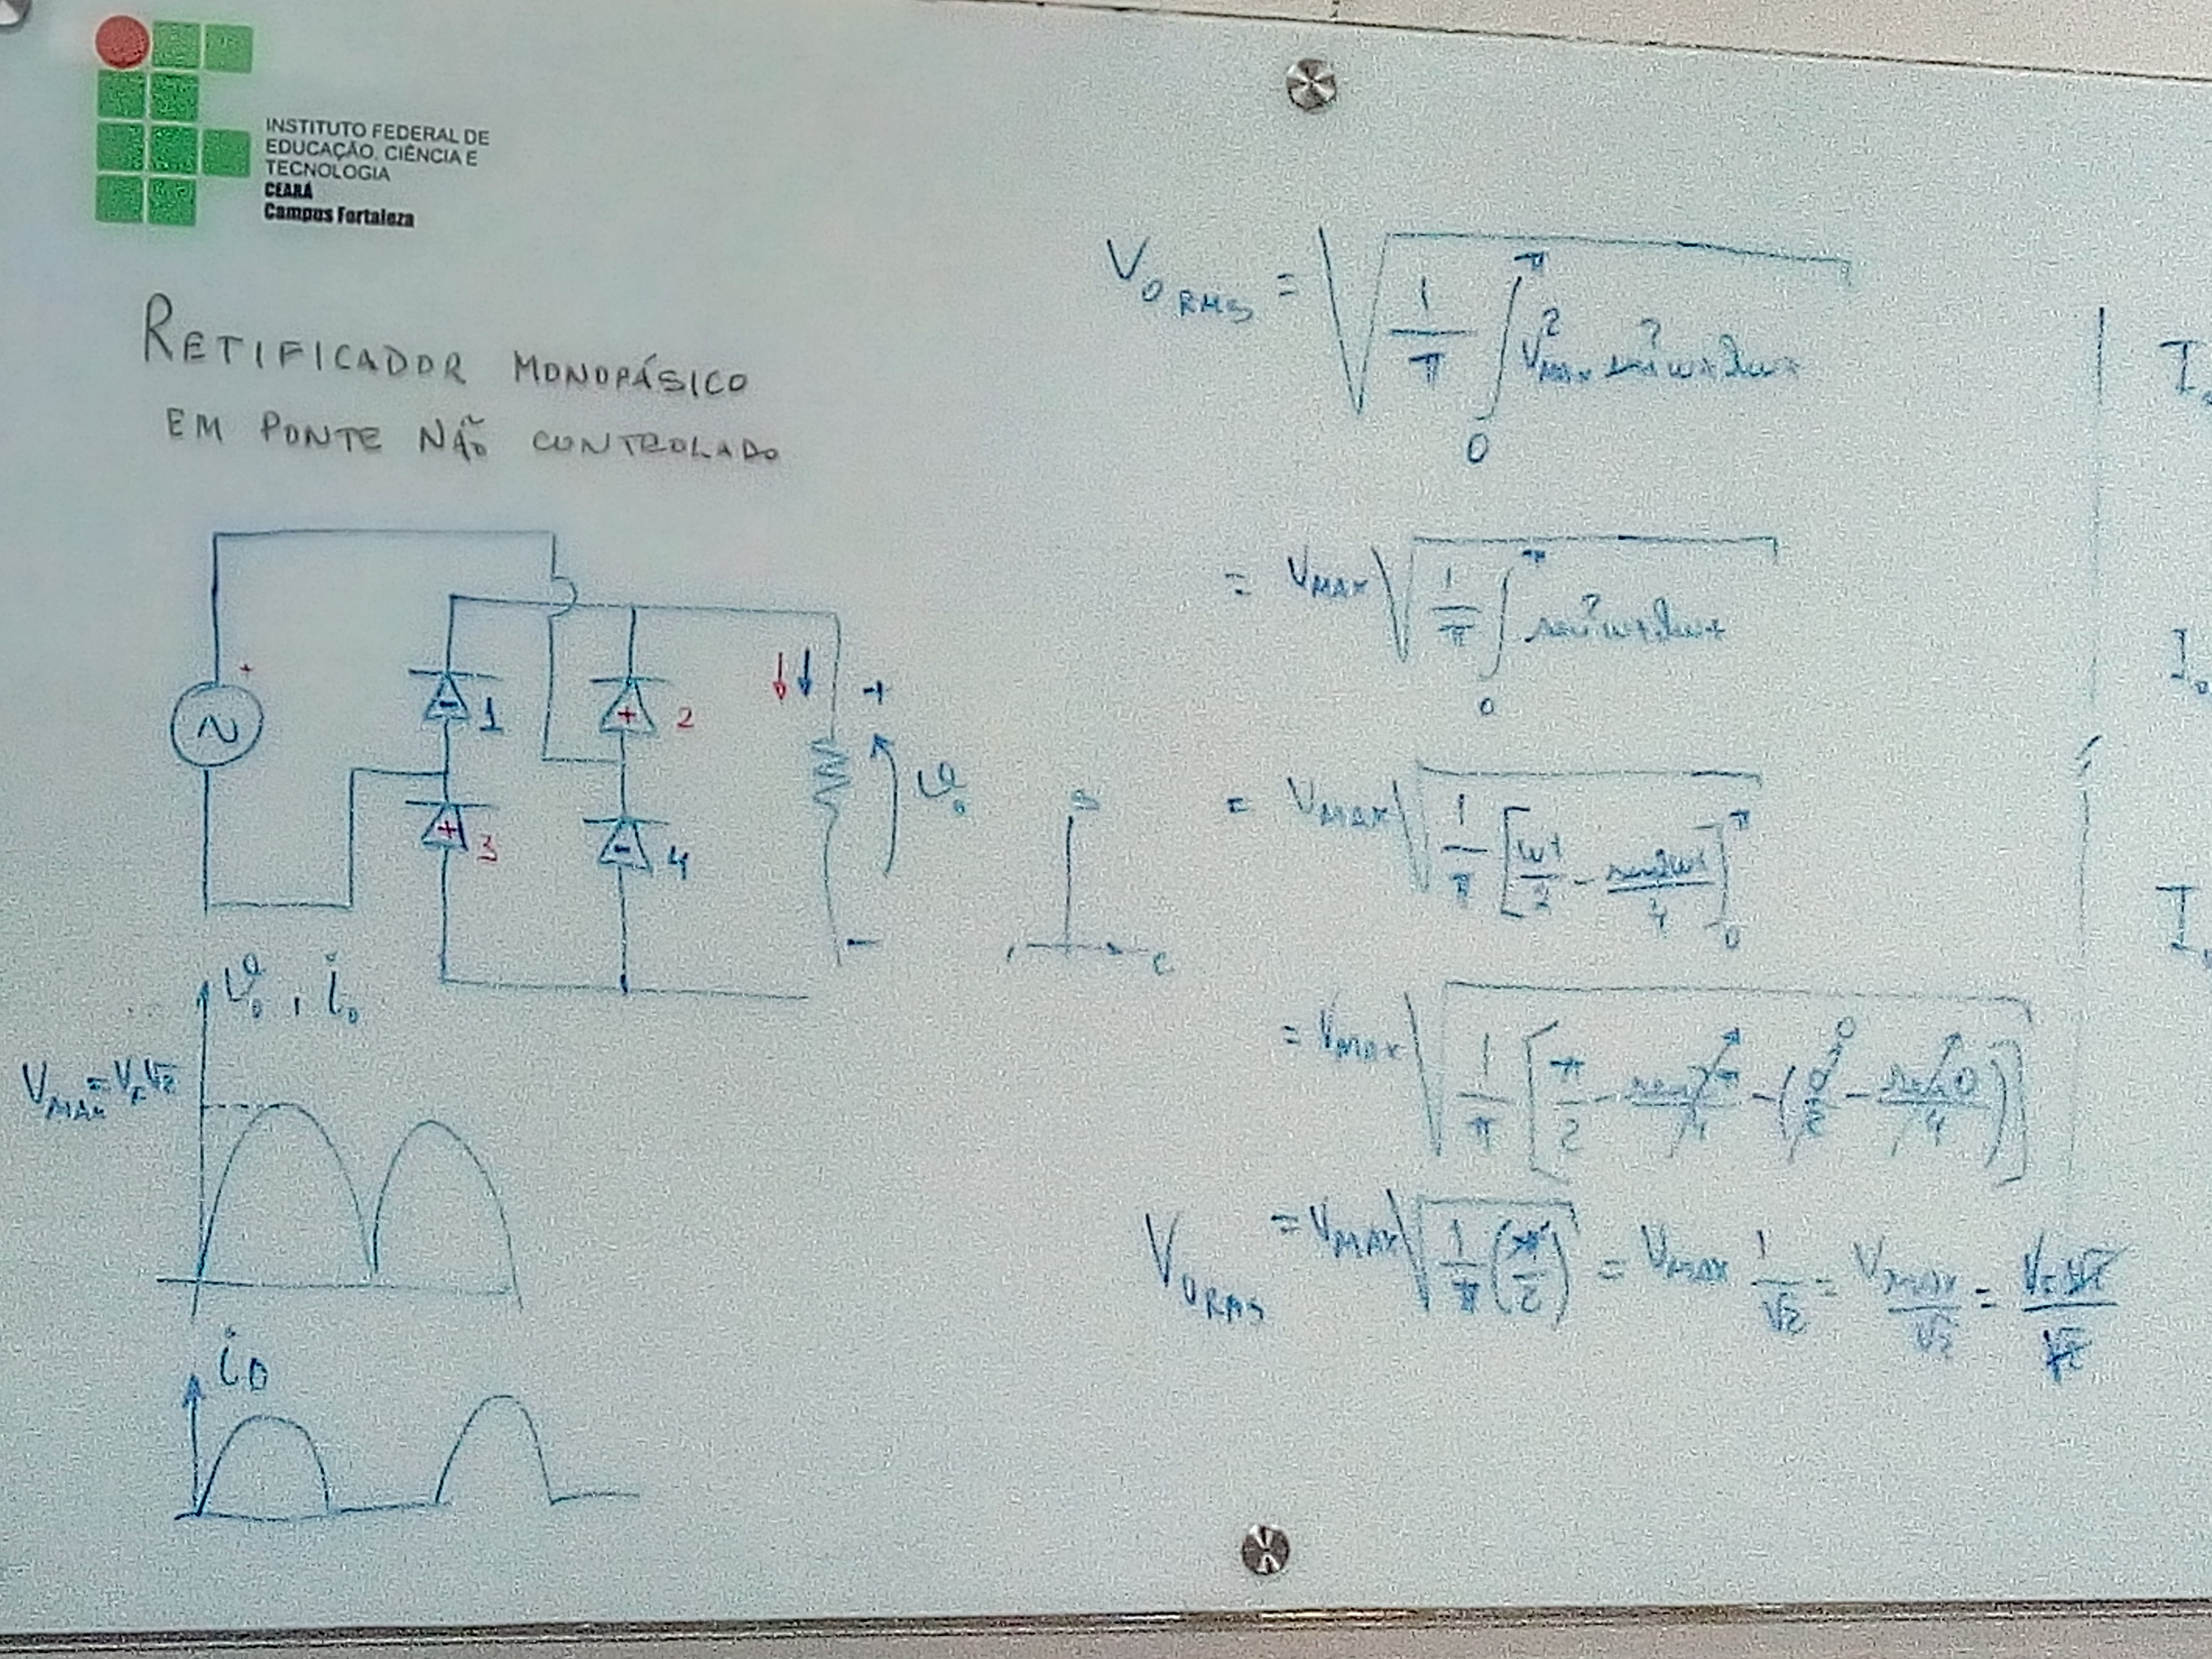 INSTITUTO FEDERAL DE
EDUCAÇÃO, CIÊNCIA E
TECNOLOGIA
CEARÁ
Campus Fortaleza
RETIFICADOR MONOFÁSICO
EM PONTE NÃO CONTROLADO
+
- 1
+ 2
+ 3
- 4
+
v₀
-
v₀, i₀
V_MAX = V_F√2
i_D
S
C
V_0RMS = √(1/π ∫₀^π V²_MAX sen²wt dwt)
= V_MAX √(1/π ∫₀^π sen²wt dwt)
= V_MAX √(1/π [wt/2 - sen2wt/4]₀^π)
= V_MAX √(1/π [π/2 - sen2π/4 - (0/2 - sen2·0/4)])
V_0RMS = V_MAX √(1/π (π/2)) = V_MAX 1/√2 = V_MAX/√2 = V_F√2/√2
I₀
I₀
I₀